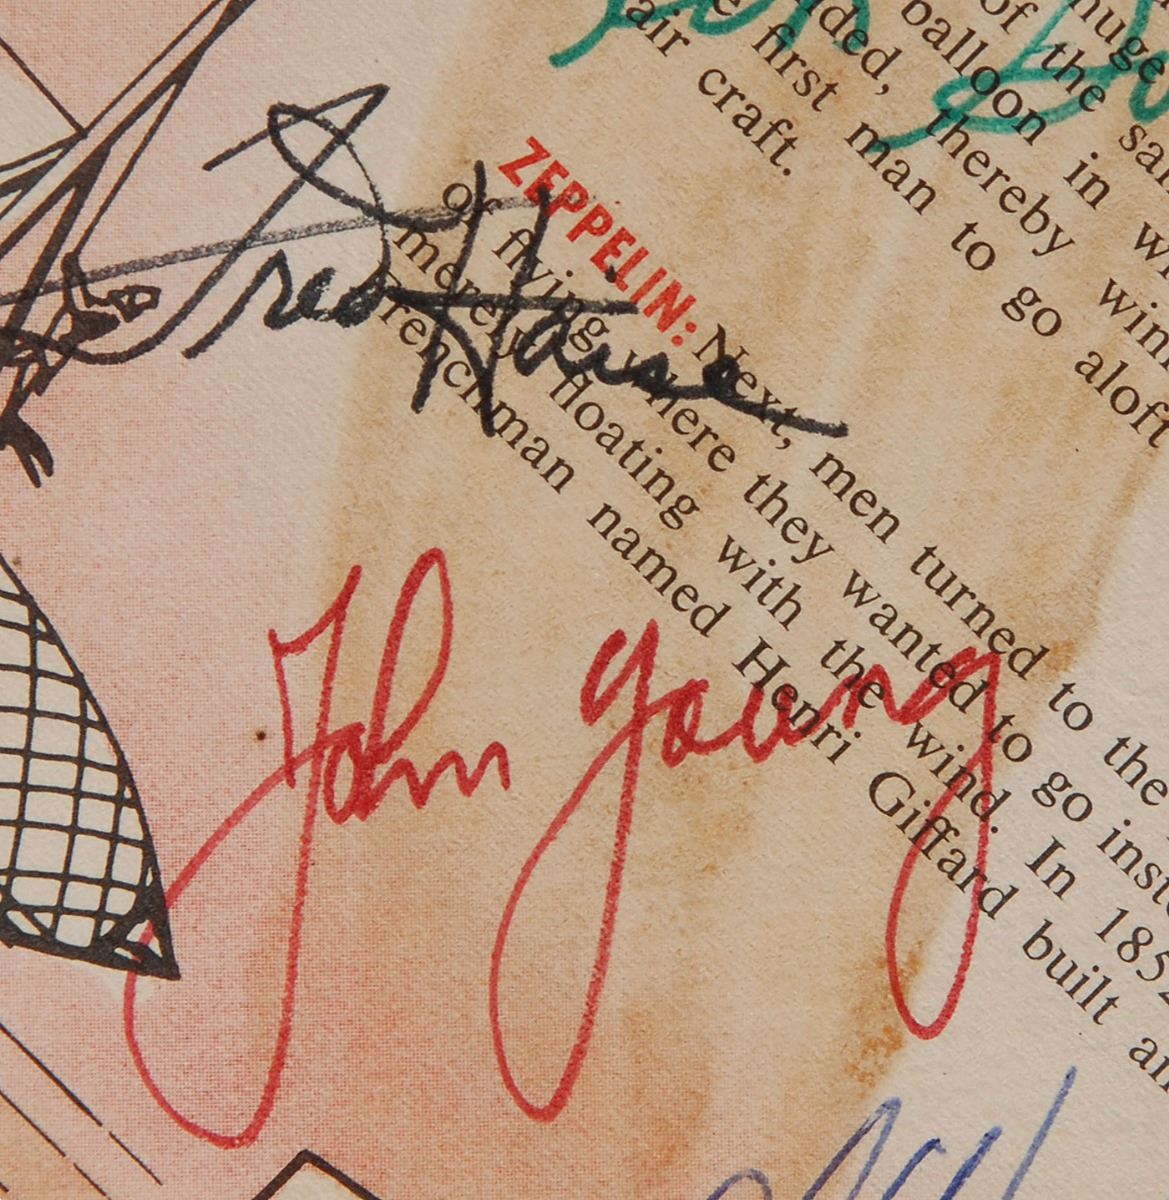 huge
of the sa
balloon in wi
ided, thereby win
e first man to go aloft
air craft.
ZEPPELIN: Next, men turned to the
or flying where they wanted to go inste
merely floating with the wind. In 1852
Frenchman named Henri Giffard built an
Fred Haise
John Young